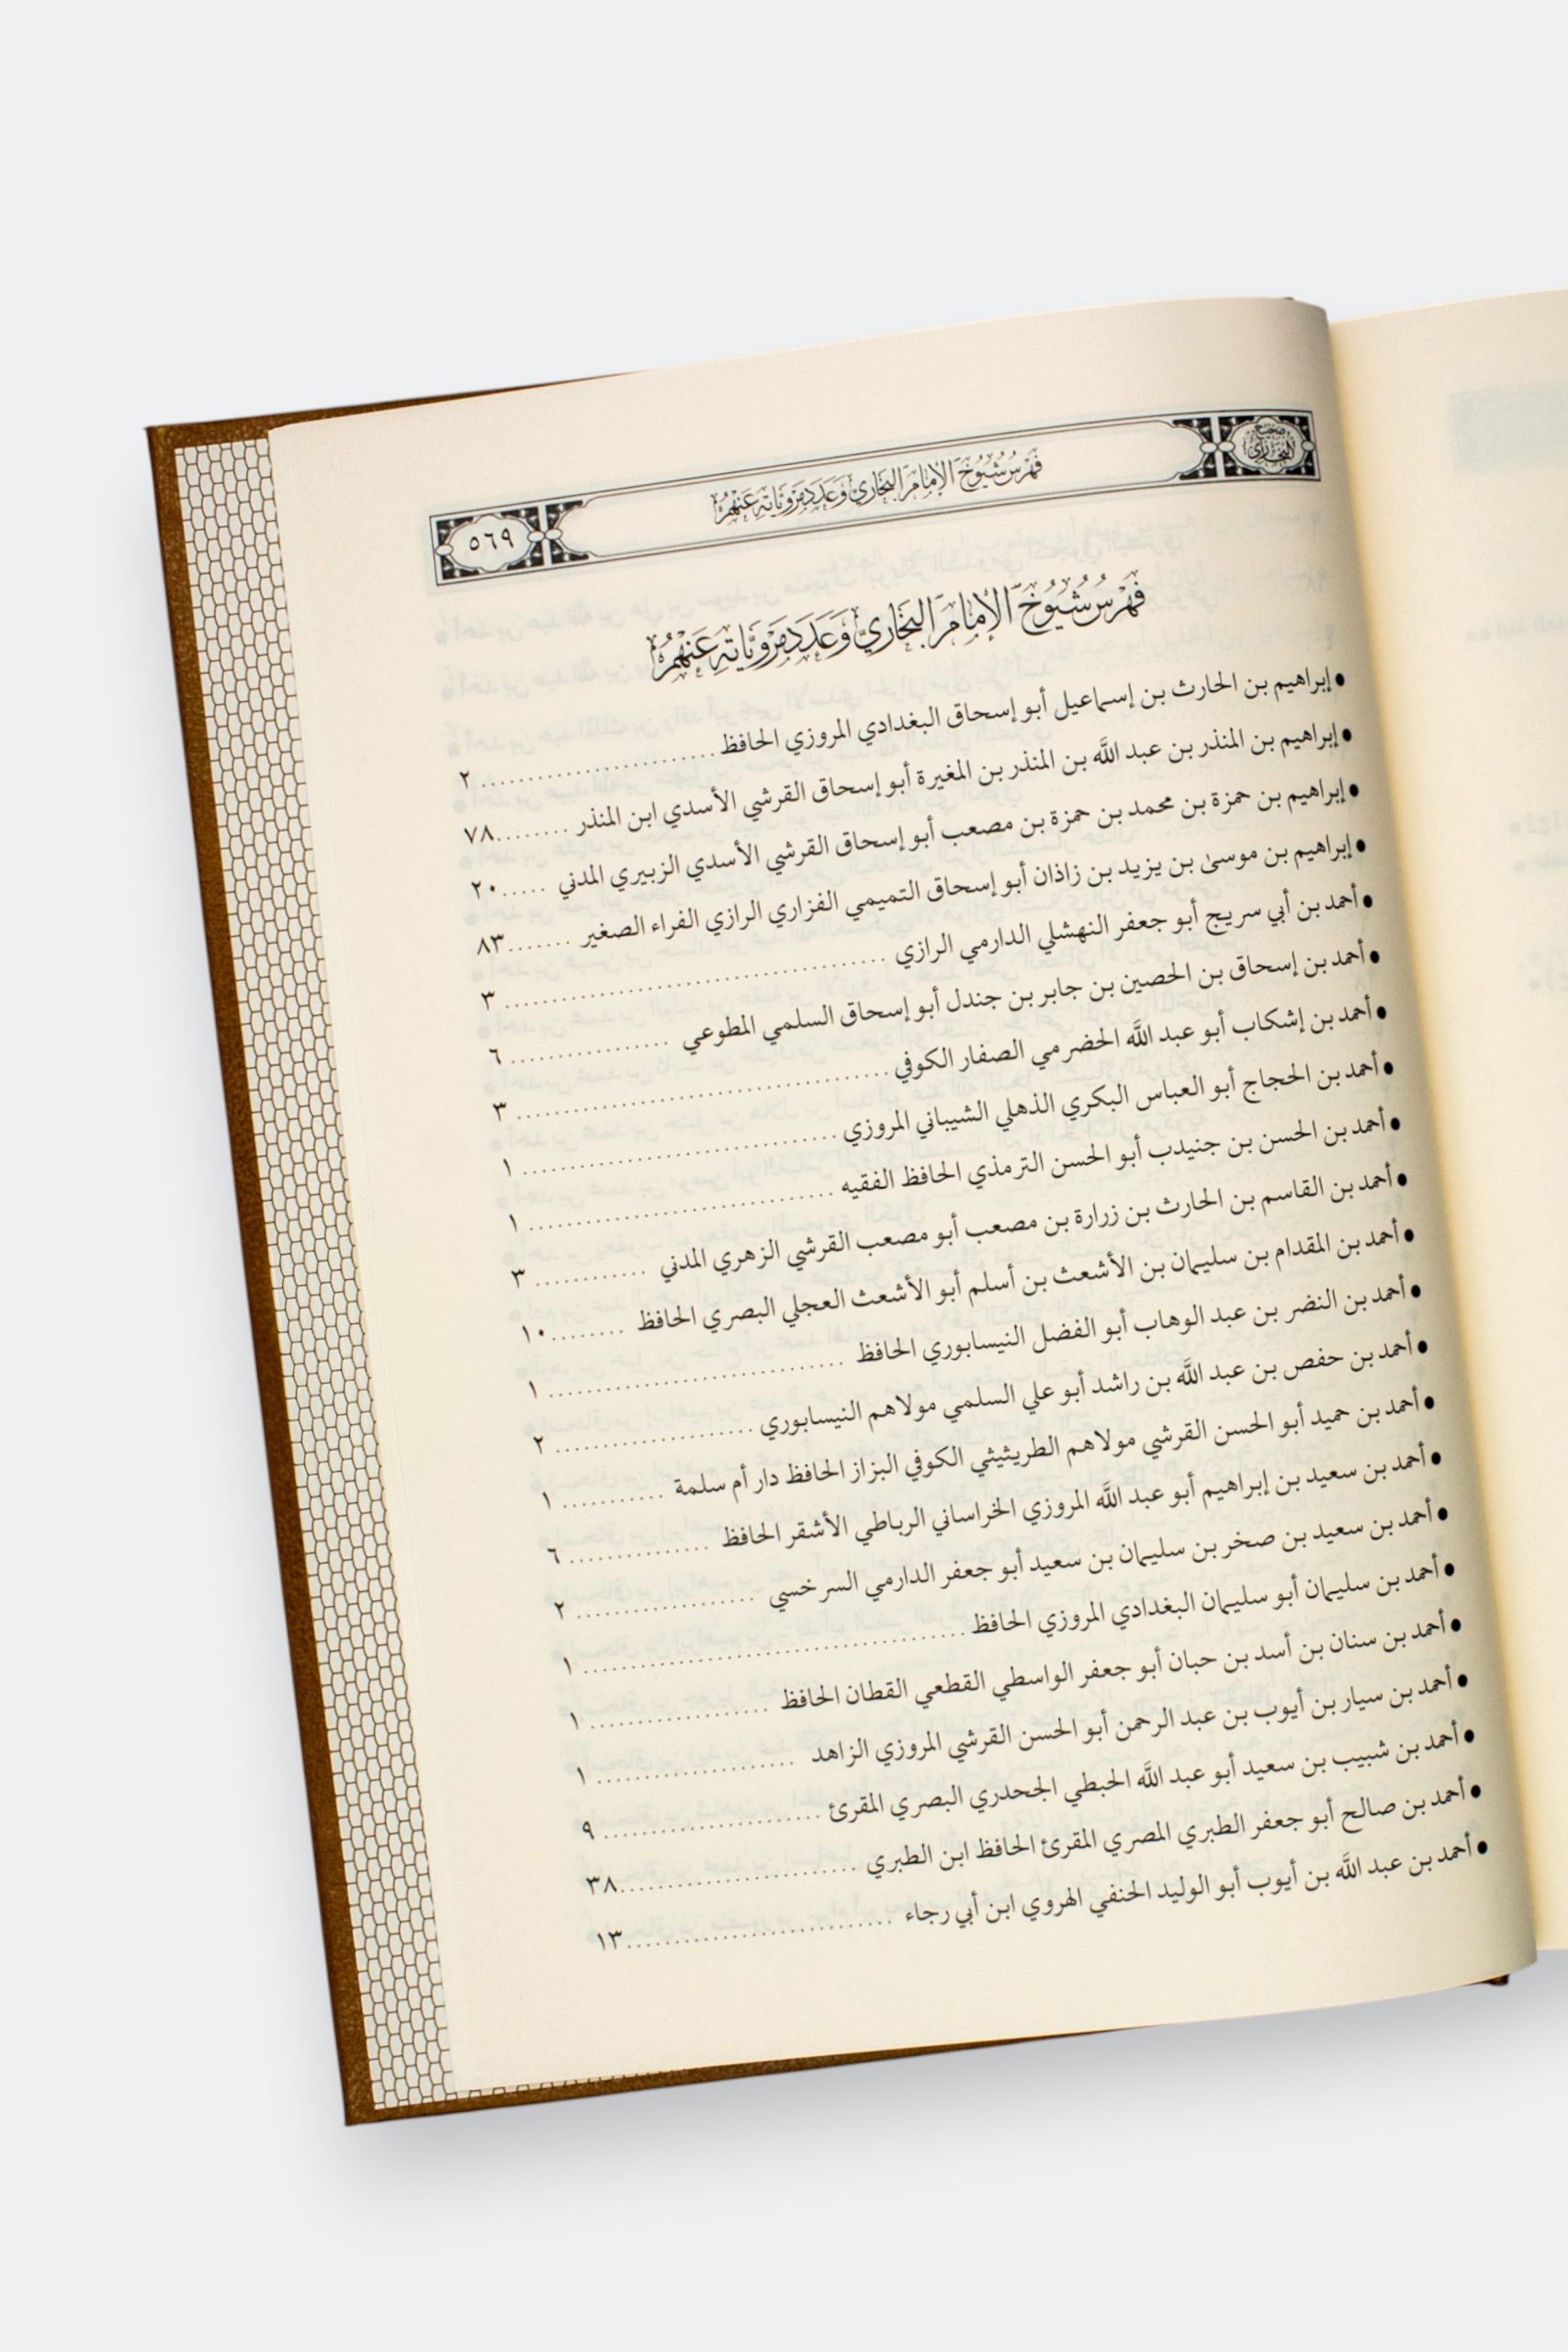 صحيح البخاري
فِهْرِسُ شُيُوخِ الإِمَامِ البُخَارِيِّ وَعَدَدِ مَرْوِيَّاتِهِ عَنْهُمْ
٥٦٩
فِهْرِسُ شُيُوخِ الإِمَامِ البُخَارِيِّ وَعَدَدِ مَرْوِيَّاتِهِ عَنْهُمْ
• إبراهيم بن الحارث بن إسماعيل أبو إسحاق البغدادي المروزي الحافظ ........................ ٢
• إبراهيم بن المنذر بن عبد اللَّه بن المنذر بن المغيرة أبو إسحاق القرشي الأسدي ابن المنذر ........ ٧٨
• إبراهيم بن حمزة بن محمد بن حمزة بن مصعب أبو إسحاق القرشي الأسدي الزبيري المدني ..... ٢٠
• إبراهيم بن موسىٰ بن يزيد بن زاذان أبو إسحاق التميمي الفزاري الرازي الفراء الصغير ....... ٨٣
• أحمد بن أبي سريج أبو جعفر النهشلي الدارمي الرازي ........................................ ٣
• أحمد بن إسحاق بن الحصين بن جابر بن جندل أبو إسحاق السلمي المطوعي ................. ٦
• أحمد بن إشكاب أبو عبد اللَّه الحضرمي الصفار الكوفي ....................................... ٣
• أحمد بن الحجاج أبو العباس البكري الذهلي الشيباني المروزي ................................. ١
• أحمد بن الحسن بن جنيدب أبو الحسن الترمذي الحافظ الفقيه ................................ ١
• أحمد بن القاسم بن الحارث بن زرارة بن مصعب أبو مصعب القرشي الزهري المدني ............ ٣
• أحمد بن المقدام بن سليمان بن الأشعث بن أسلم أبو الأشعث العجلي البصري الحافظ ........ ١٠
• أحمد بن النضر بن عبد الوهاب أبو الفضل النيسابوري الحافظ ............................... ١
• أحمد بن حفص بن عبد اللَّه بن راشد أبو علي السلمي مولاهم النيسابوري ..................... ٢
• أحمد بن حميد أبو الحسن القرشي مولاهم الطريثيثي الكوفي البزاز الحافظ دار أم سلمة ........... ١
• أحمد بن سعيد بن إبراهيم أبو عبد اللَّه المروزي الخراساني الرباطي الأشقر الحافظ ............... ٦
• أحمد بن سعيد بن صخر بن سليمان بن سعيد أبو جعفر الدارمي السرخسي ................... ٢
• أحمد بن سليمان أبو سليمان البغدادي المروزي الحافظ ........................................ ١
• أحمد بن سنان بن أسد بن حبان أبو جعفر الواسطي القطعي القطان الحافظ ................... ١
• أحمد بن سيار بن أيوب بن عبد الرحمن أبو الحسن القرشي المروزي الزاهد ..................... ١
• أحمد بن شبيب بن سعيد أبو عبد اللَّه الحبطي الجحدري البصري المقرئ ....................... ٩
• أحمد بن صالح أبو جعفر الطبري المصري المقرئ الحافظ ابن الطبري ......................... ٣٨
• أحمد بن عبد اللَّه بن أيوب أبو الوليد الحنفي الهروي ابن أبي رجاء ............................ ١٣